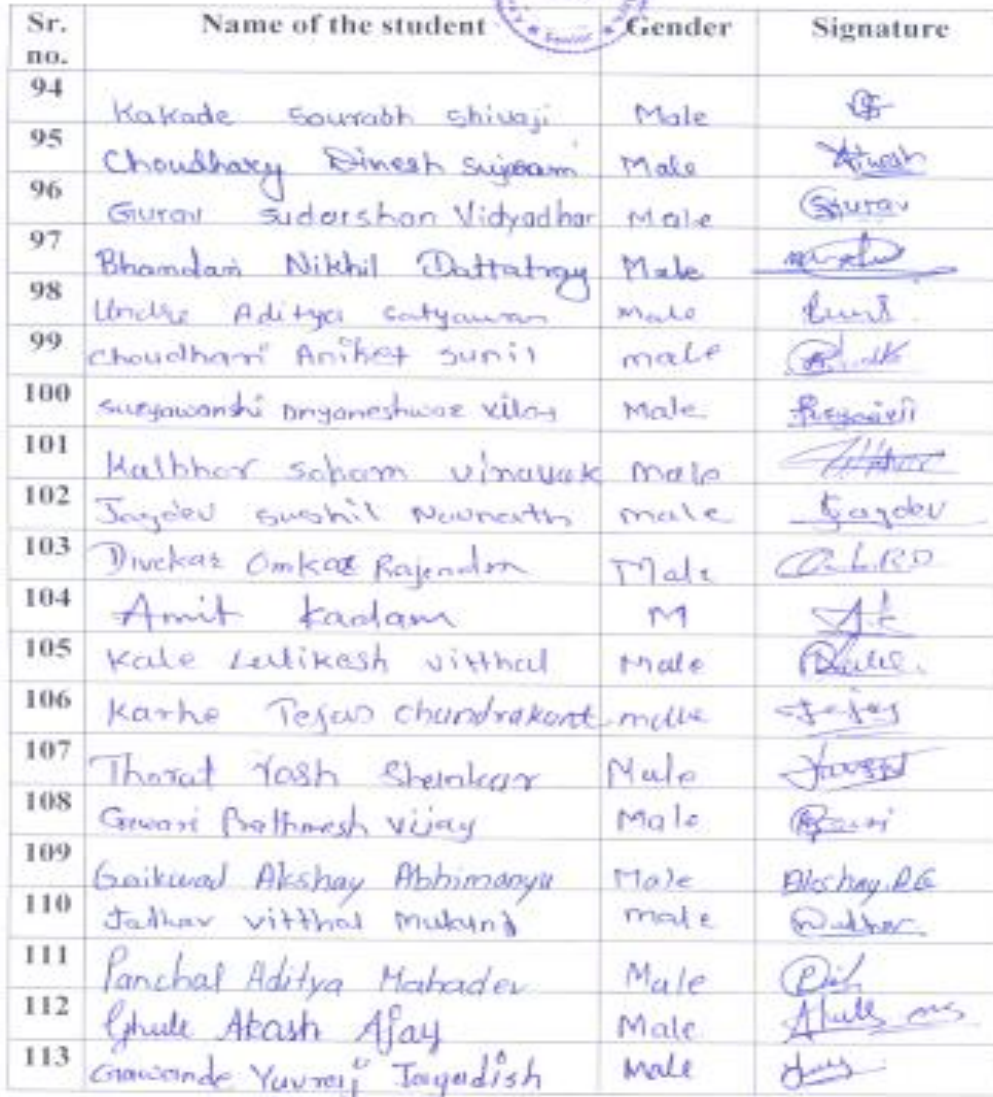 Senior
Sr. no. Name of the student Gender Signature
94 Kakade Sourabh Shivaji Male
95 Choudhary Dinesh Sujaram Male
96 Gurav Sudarshan Vidyadhar Male Gurav
97 Bhandari Nikhil Dattatray Male
98 Undre Aditya Satyawan Male
99 Choudhari Aniket Sunil male
100 Suryawanshi Dnyaneshwar Vilas Male
101 Kalbhor Soham Vinayak Male
102 Jagdev Sushil Navnath male Jagdev
103 Divekar Omkar Rajendra Male
104 Amit Kadam M AK
105 Kale Vitthal Male
106 Karhe Tejas Chandrakant male Tejas
107 Thorat Yash Shankar Male
108 Gawari Prathmesh Vijay Male
109 Gaikwad Akshay Abhimanyu Male Akshay.AG
110 Jadhav Vitthal Mukund male
111 Panchal Aditya Mahadev Male
112 Ghule Akash Ajay Male
113 Gawande Yuvraj Jagadish Male